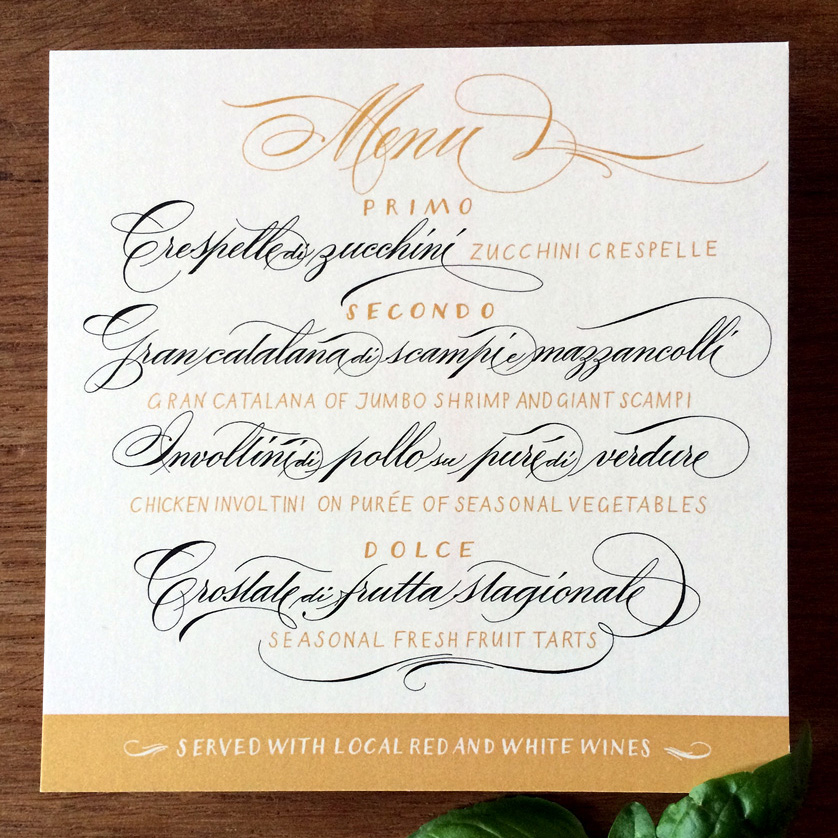 Menu
PRIMO
Crespelle di zucchini ZUCCHINI CRESPELLE
SECONDO
Gran catalana di scampi e mazzancolli
GRAN CATALANA OF JUMBO SHRIMP AND GIANT SCAMPI
Involtini di pollo su puré di verdure
CHICKEN INVOLTINI ON PURÉE OF SEASONAL VEGETABLES
DOLCE
Crostate di frutta stagionale
SEASONAL FRESH FRUIT TARTS
SERVED WITH LOCAL RED AND WHITE WINES